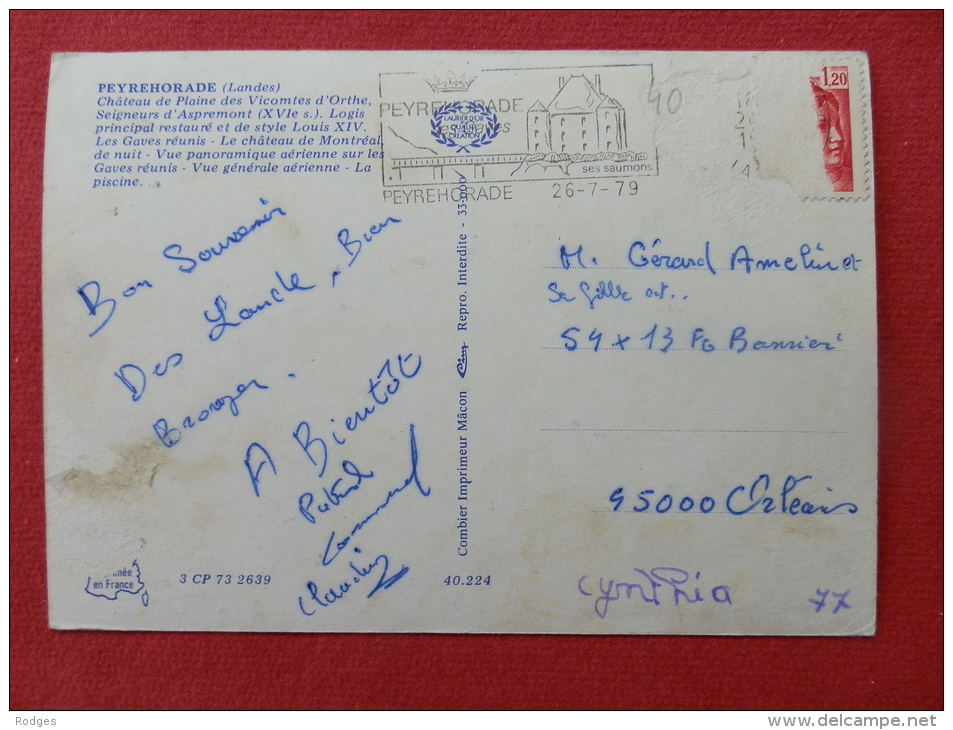 PEYREHORADE (Landes)
Château de Plaine des Vicomtes d'Orthe,
Seigneurs d'Aspremont (XVIe s.). Logis
principal restauré et de style Louis XIV.
Les Gaves réunis - Le château de Montréal
de nuit - Vue panoramique aérienne sur les
Gaves réunis - Vue générale aérienne - La
piscine.
PEYREHORADE
LAURIER D'OR
QUALITÉ
CRÉATION
ses saumons
PEYREHORADE 26-7-79
40
1,20
Bon Souvenir
Des Lande, Bien
Bronzer.
A Bientôt
Combier Imprimeur Mâcon Repro. Interdite - 33.000
M. Gérard Amelin et
Se fille est..
54 x 13 FG
45000 Orléans
née
en France
3 CP 73 2639
40.224
cynthia
77
Rodges
www.delcampe.net